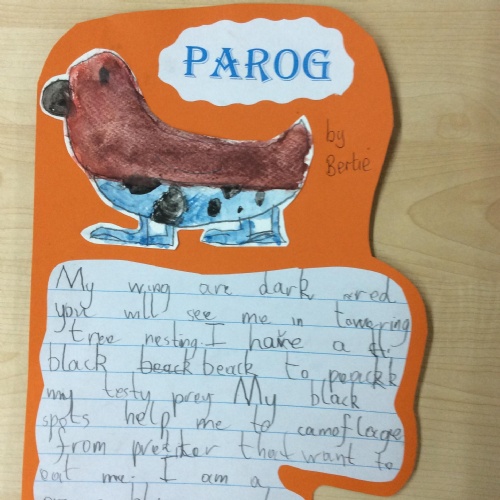 PAROG
by
Bertie
My wing are dark red
you will see me in towering
tree nesting. I have a
black beack beack to
my testy prey My black
spots help me to camoflage
from that want to
eat me. I am a